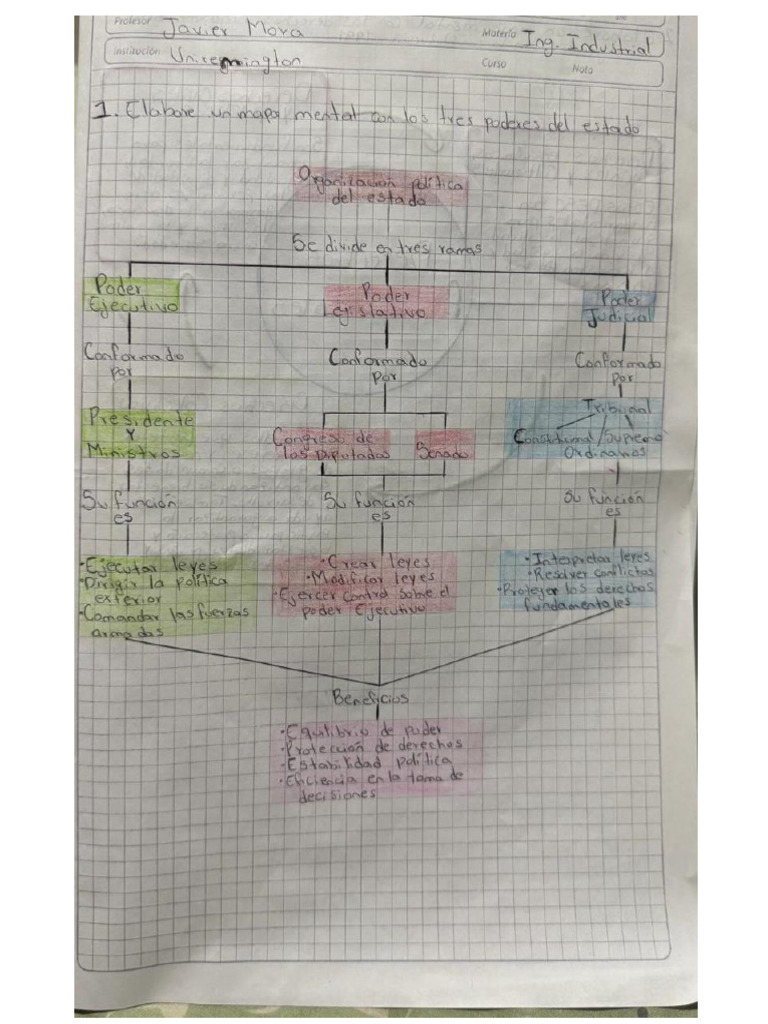 Profesor Javier Mora Materia Ing. Industrial
Institución Uniremington Curso Nota
1. Elabore un mapa mental con los tres poderes del estado
Organización política
del estado
Se divide en tres ramas
Poder
Ejecutivo
Poder
Legislativo
Poder
Judicial
Conformado
por
Conformado
por
Conformado
por
Presidente
Y
Ministros
Congreso de
los Diputados
Senado
Tribunal
Constitucional/Supremo
Ordinarios
Su función
es
Su función
es
Su función
es
·Ejecutar leyes
·Dirigir la política
exterior
·Comandar las fuerzas
armadas
·Crear leyes
·Modificar leyes
·Ejercer control sobre el
poder Ejecutivo
·Interpretar leyes
·Resolver conflictos
·Proteger los derechos
fundamentales
Beneficios
·Equilibrio de poder
·Protección de derechos
·Estabilidad política
·Eficiencia en la toma de
decisiones